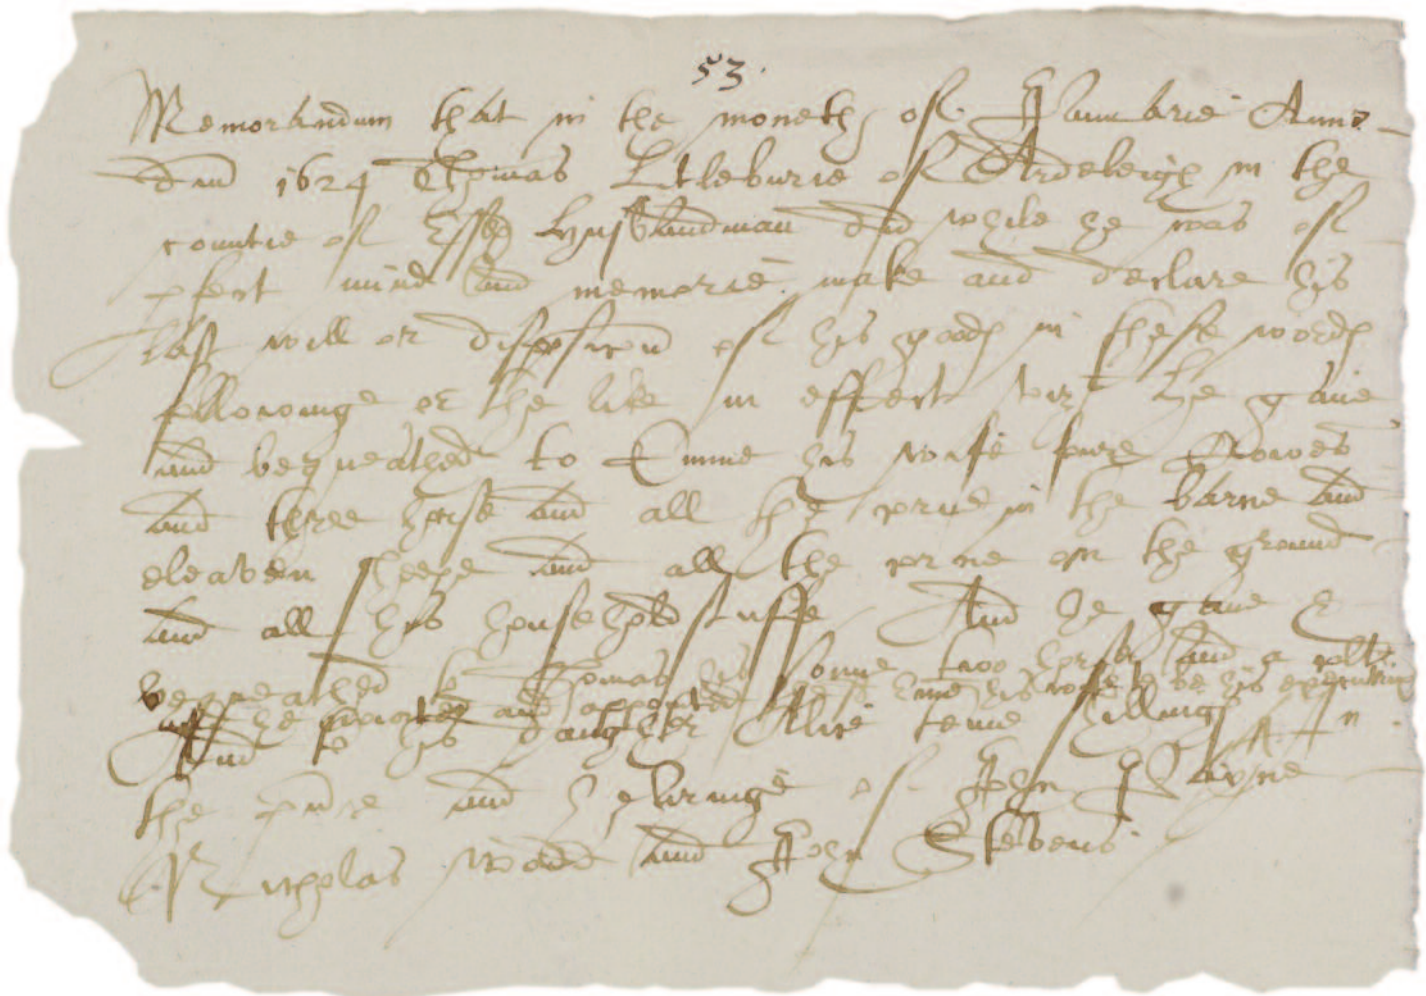 53.
Memorandum that in the moneth of Januarie Anno
dni 1624 Thomas Litleburie of Ardeleigh in the
countie of Essex husbandman did while he was of
pfect mind and memorie make and declare his
last will or disposicon of his goods in these words
followinge or the like in effect vizt He gave
and bequeathed to Emme his wife fowre Cowes
and three horse and all the corne in the barne and
eleaven sheepe and all the corne on the ground
and all his household stuffe And he gave &
bequeathed to Thomas his sonne two horse and a colte
he and appoynted Emme his wife to be his executrix
And to his daughter Alice tenne shillings In
the pnce and hearinge of John Payne
Nicholas Wood and John Stevens